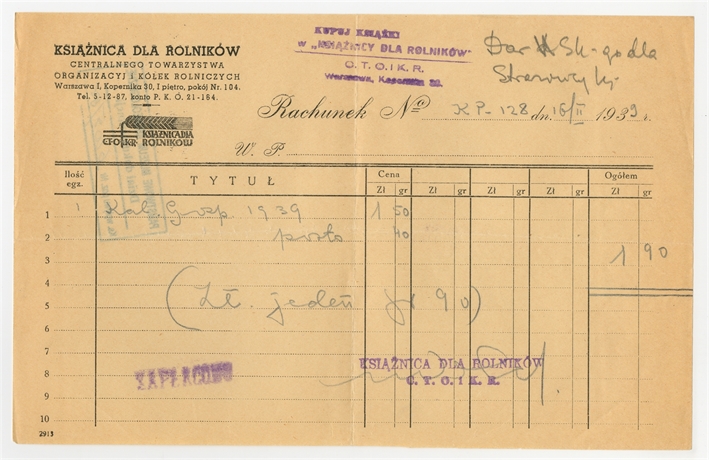 KSIĄŻNICA DLA ROLNIKÓW
CENTRALNEGO TOWARZYSTWA
ORGANIZACYJ I KÓŁEK ROLNICZYCH
Warszawa I, Kopernika 30, I piętro, pokój Nr. 104.
Tel. 5-12-87, konto P. K. O. 21-164.
KUPUJ KSIĄŻKI
w „KSIĄŻNICY DLA ROLNIKÓW"
C. T. O. i K. R.
Warszawa, Kopernika 30.
Dar
CTO i KR
KSIĄŻNICA DLA
ROLNIKÓW
Rachunek No KP-128 dn. 16/II 1939 r.
W. P.
Ilość egz. TYTUŁ Cena Ogółem
Zł gr Zł gr Zł gr Zł gr Zł gr
1 1 Kal. Gosp. 1939 1 50
2 porto 40
3 1 90
4
5 (Zł. jeden gr 90)
6
7 KSIĄŻNICA DLA ROLNIKÓW
ZAPŁACONO C. T. O. i K. R.
8
9
10
2913